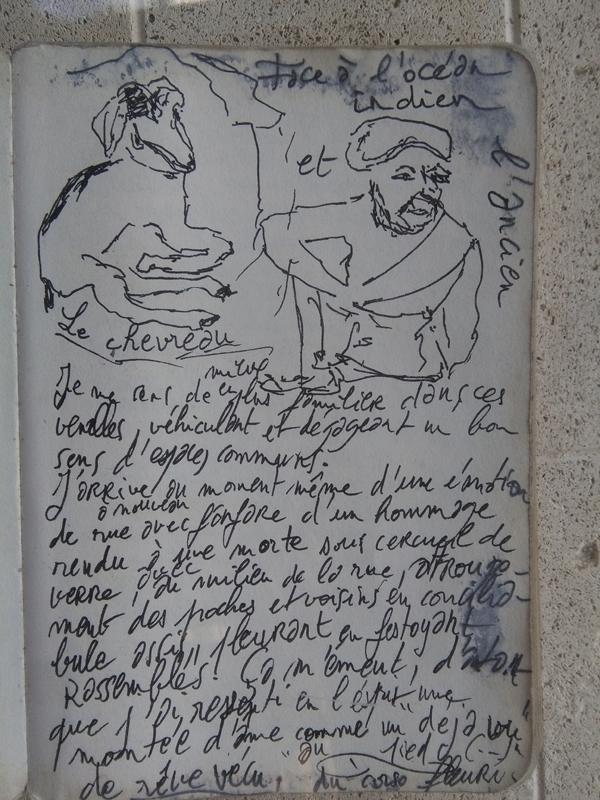 Face à l'océan
indien
l'ancien
et
Le chevreau
Je me sens de mieux familière dans ces
venelles, véhiculant et dégageant un bon
sens d'espaces communs.
J'arrive au moment même d'une émotion
à nouveau
de rue avec fanfare d'un hommage
rendu à une morte sous cercueil de
verre, avec au milieu de la rue, attroupe-
ment des proches et voisins en concilia-
bule assis, pleurant en festoyant,
Rassemblés. Ça m'émeut, d'autant
que j'ai ressenti en l'esprit une
montée d'âme comme un "déjà vu"
de rêve vécu, "au pied (...)
du corso fleuri.